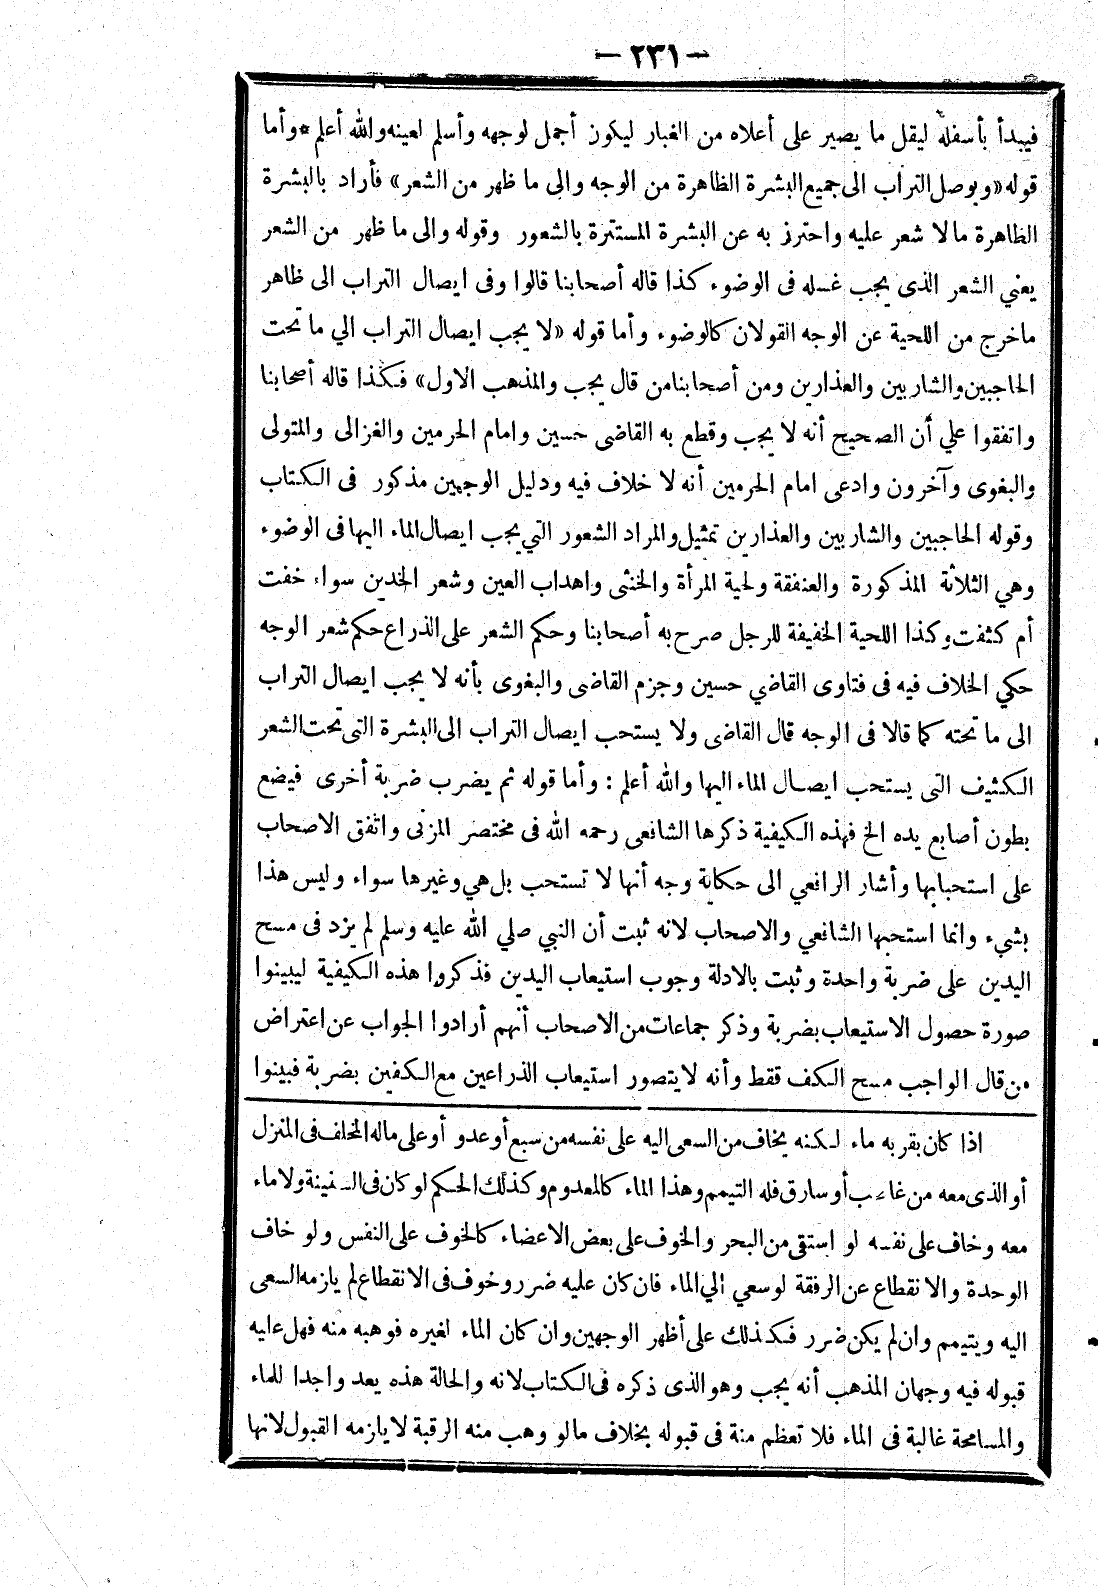 — ٢٣١ —
فيبدأ بأسفله ليقل ما يصير على أعلاه من الغبار ليكون أجمل لوجهه وأسلم لعينه والله أعلم * وأما
قوله « ويوصل التراب الى جميع البشرة الظاهرة من الوجه والى ما ظهر من الشعر » فأراد بالبشرة
الظاهرة مالا شعر عليه واحترز به عن البشرة المستترة بالشعور وقوله والى ما ظهر من الشعر
يعني الشعر الذى يجب غسله فى الوضوء كذا قاله أصحابنا قالوا وفى ايصال التراب الى ظاهر
ماخرج من اللحية عن الوجه القولان كالوضوء وأما قوله « لا يجب ايصال التراب الي ما تحت
الحاجبين والشاربين والعذارين ومن أصحابنا من قال يجب والمذهب الاول » فكذا قاله أصحابنا
واتفقوا علي أن الصحيح أنه لا يجب وقطع به القاضى حسين وامام الحرمين والغزالى والمتولى
والبغوى وآخرون وادعى امام الحرمين أنه لا خلاف فيه ودليل الوجهين مذكور فى الكتاب
وقوله الحاجبين والشاربين والعذارين تمثيل والمراد الشعور التي يجب ايصال الماء اليها فى الوضوء
وهي الثلاثة المذكورة والعنفقة ولحية المرأة والخنثى واهداب العين وشعر الخدين سواء خفت
أم كثفت وكذا اللحية الخفيفة للرجل صرح به أصحابنا وحكم الشعر على الذراع حكم شعر الوجه
حكي الخلاف فيه فى فتاوى القاضي حسين وجزم القاضى والبغوى بأنه لا يجب ايصال التراب
الى ما تحته كما قالا فى الوجه قال القاضى ولا يستحب ايصال التراب الى البشرة التى تحت الشعر
الكثيف التى يستحب ايصال الماء اليها والله أعلم : وأما قوله ثم يضرب ضربة أخرى فيضع
بطون أصابع يده الخ فهذه الكيفية ذكرها الشافعى رحمه الله فى مختصر المزنى واتفق الاصحاب
على استحبابها وأشار الرافعي الى حكاية وجه أنها لا تستحب بل هي وغيرها سواء وليس هذا
بشيء وانما استحبها الشافعي والاصحاب لانه ثبت أن النبي صلي الله عليه وسلم لم يزد فى مسح
اليدين على ضربة واحدة وثبت بالادلة وجوب استيعاب اليدين فذكروا هذه الكيفية ليبينوا
صورة حصول الاستيعاب بضربة وذكر جماعات من الاصحاب أنهم أرادوا الجواب عن اعتراض
من قال الواجب مسح الكف فقط وأنه لا يتصور استيعاب الذراعين مع الكفين بضربة فبينوا
اذا كان بقربه ماء لكنه يخاف من السعى اليه على نفسه من سبع أو عدو أو على ماله المخلف فى المنزل
أو الذى معه من غاصب أو سارق فله التيمم وهذا الماء كالمعدوم وكذلك الحكم لو كان فى السفينة ولا ماء
معه وخاف على نفسه لو استقى من البحر والخوف على بعض الاعضاء كالخوف على النفس ولو خاف
الوحدة والانقطاع عن الرفقة لو سعي الي الماء فان كان عليه ضرر وخوف فى الانقطاع لم يلزمه السعى
اليه ويتيمم وان لم يكن ضرر فكذلك على أظهر الوجهين وان كان الماء لغيره فوهبه منه فهل عليه
قبوله فيه وجهان المذهب أنه يجب وهو الذى ذكره فى الكتاب لانه والحالة هذه يعد واجدا للماء
والمسامحة غالبة فى الماء فلا تعظم منة فى قبوله بخلاف مالو وهب منه الرقبة لا يلزمه القبول لانها